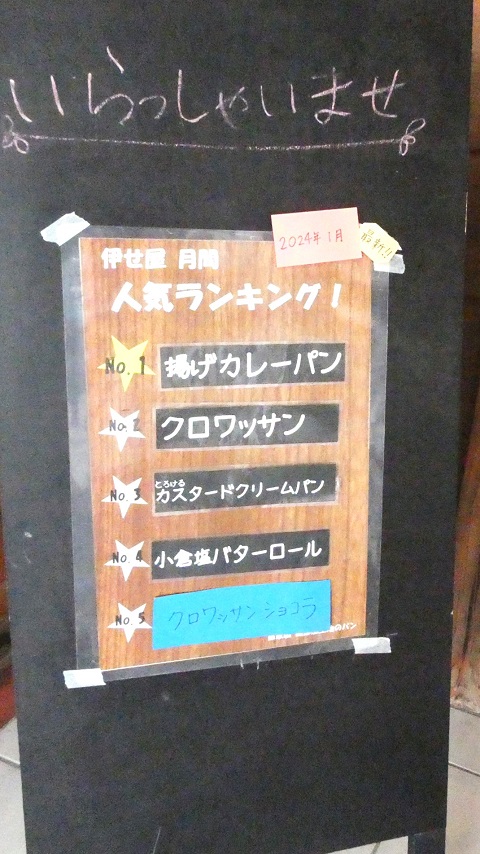 いらっしゃいませ
2024年1月
最新!!
伊せ屋 月間
人気ランキング!
No.1 揚げカレーパン
No.2 クロワッサン
とろける
No.3 カスタードクリームパン
No.4 小倉塩バターロール
No.5 クロワッサンショコラ
のパン